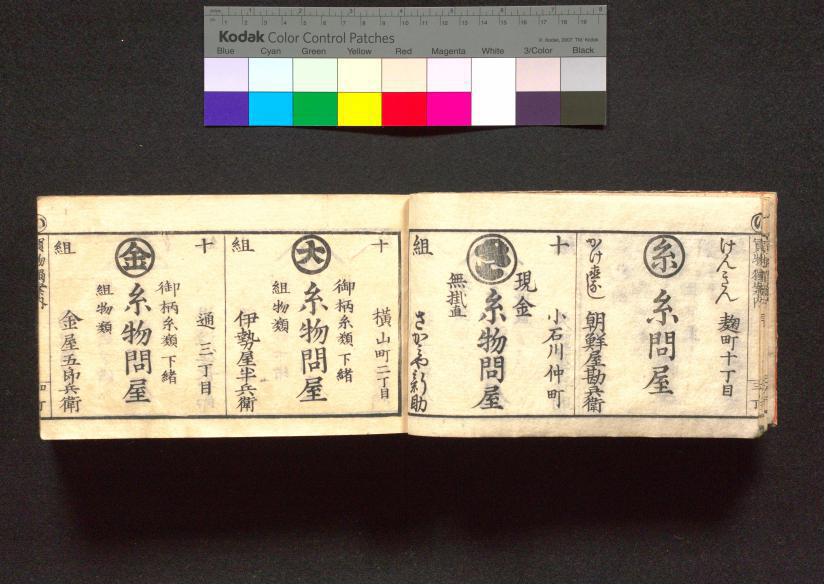 Kodak Color Control Patches
© Kodak, 2007 TM: Kodak
Blue Cyan Green Yellow Red Magenta White 3/Color Black
けんきん 麹町十丁目
糸 糸問屋
かけ直なし 朝鮮屋勘兵衛
十 小石川仲町
現金
糸物問屋
無掛直
組 さかや新助
十 横山町二丁目
御柄糸類下緒
大 糸物問屋
組物類
組 伊勢屋半兵衛
十 通三丁目
御柄糸類下緒
金 糸物問屋
組物類
組 金屋五郎兵衛